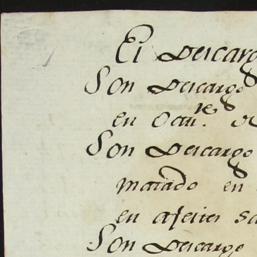 El Descarg
Son Descargo
en Octu.^e
Son Descargo
matado en
en aseies sa
Son Descargo